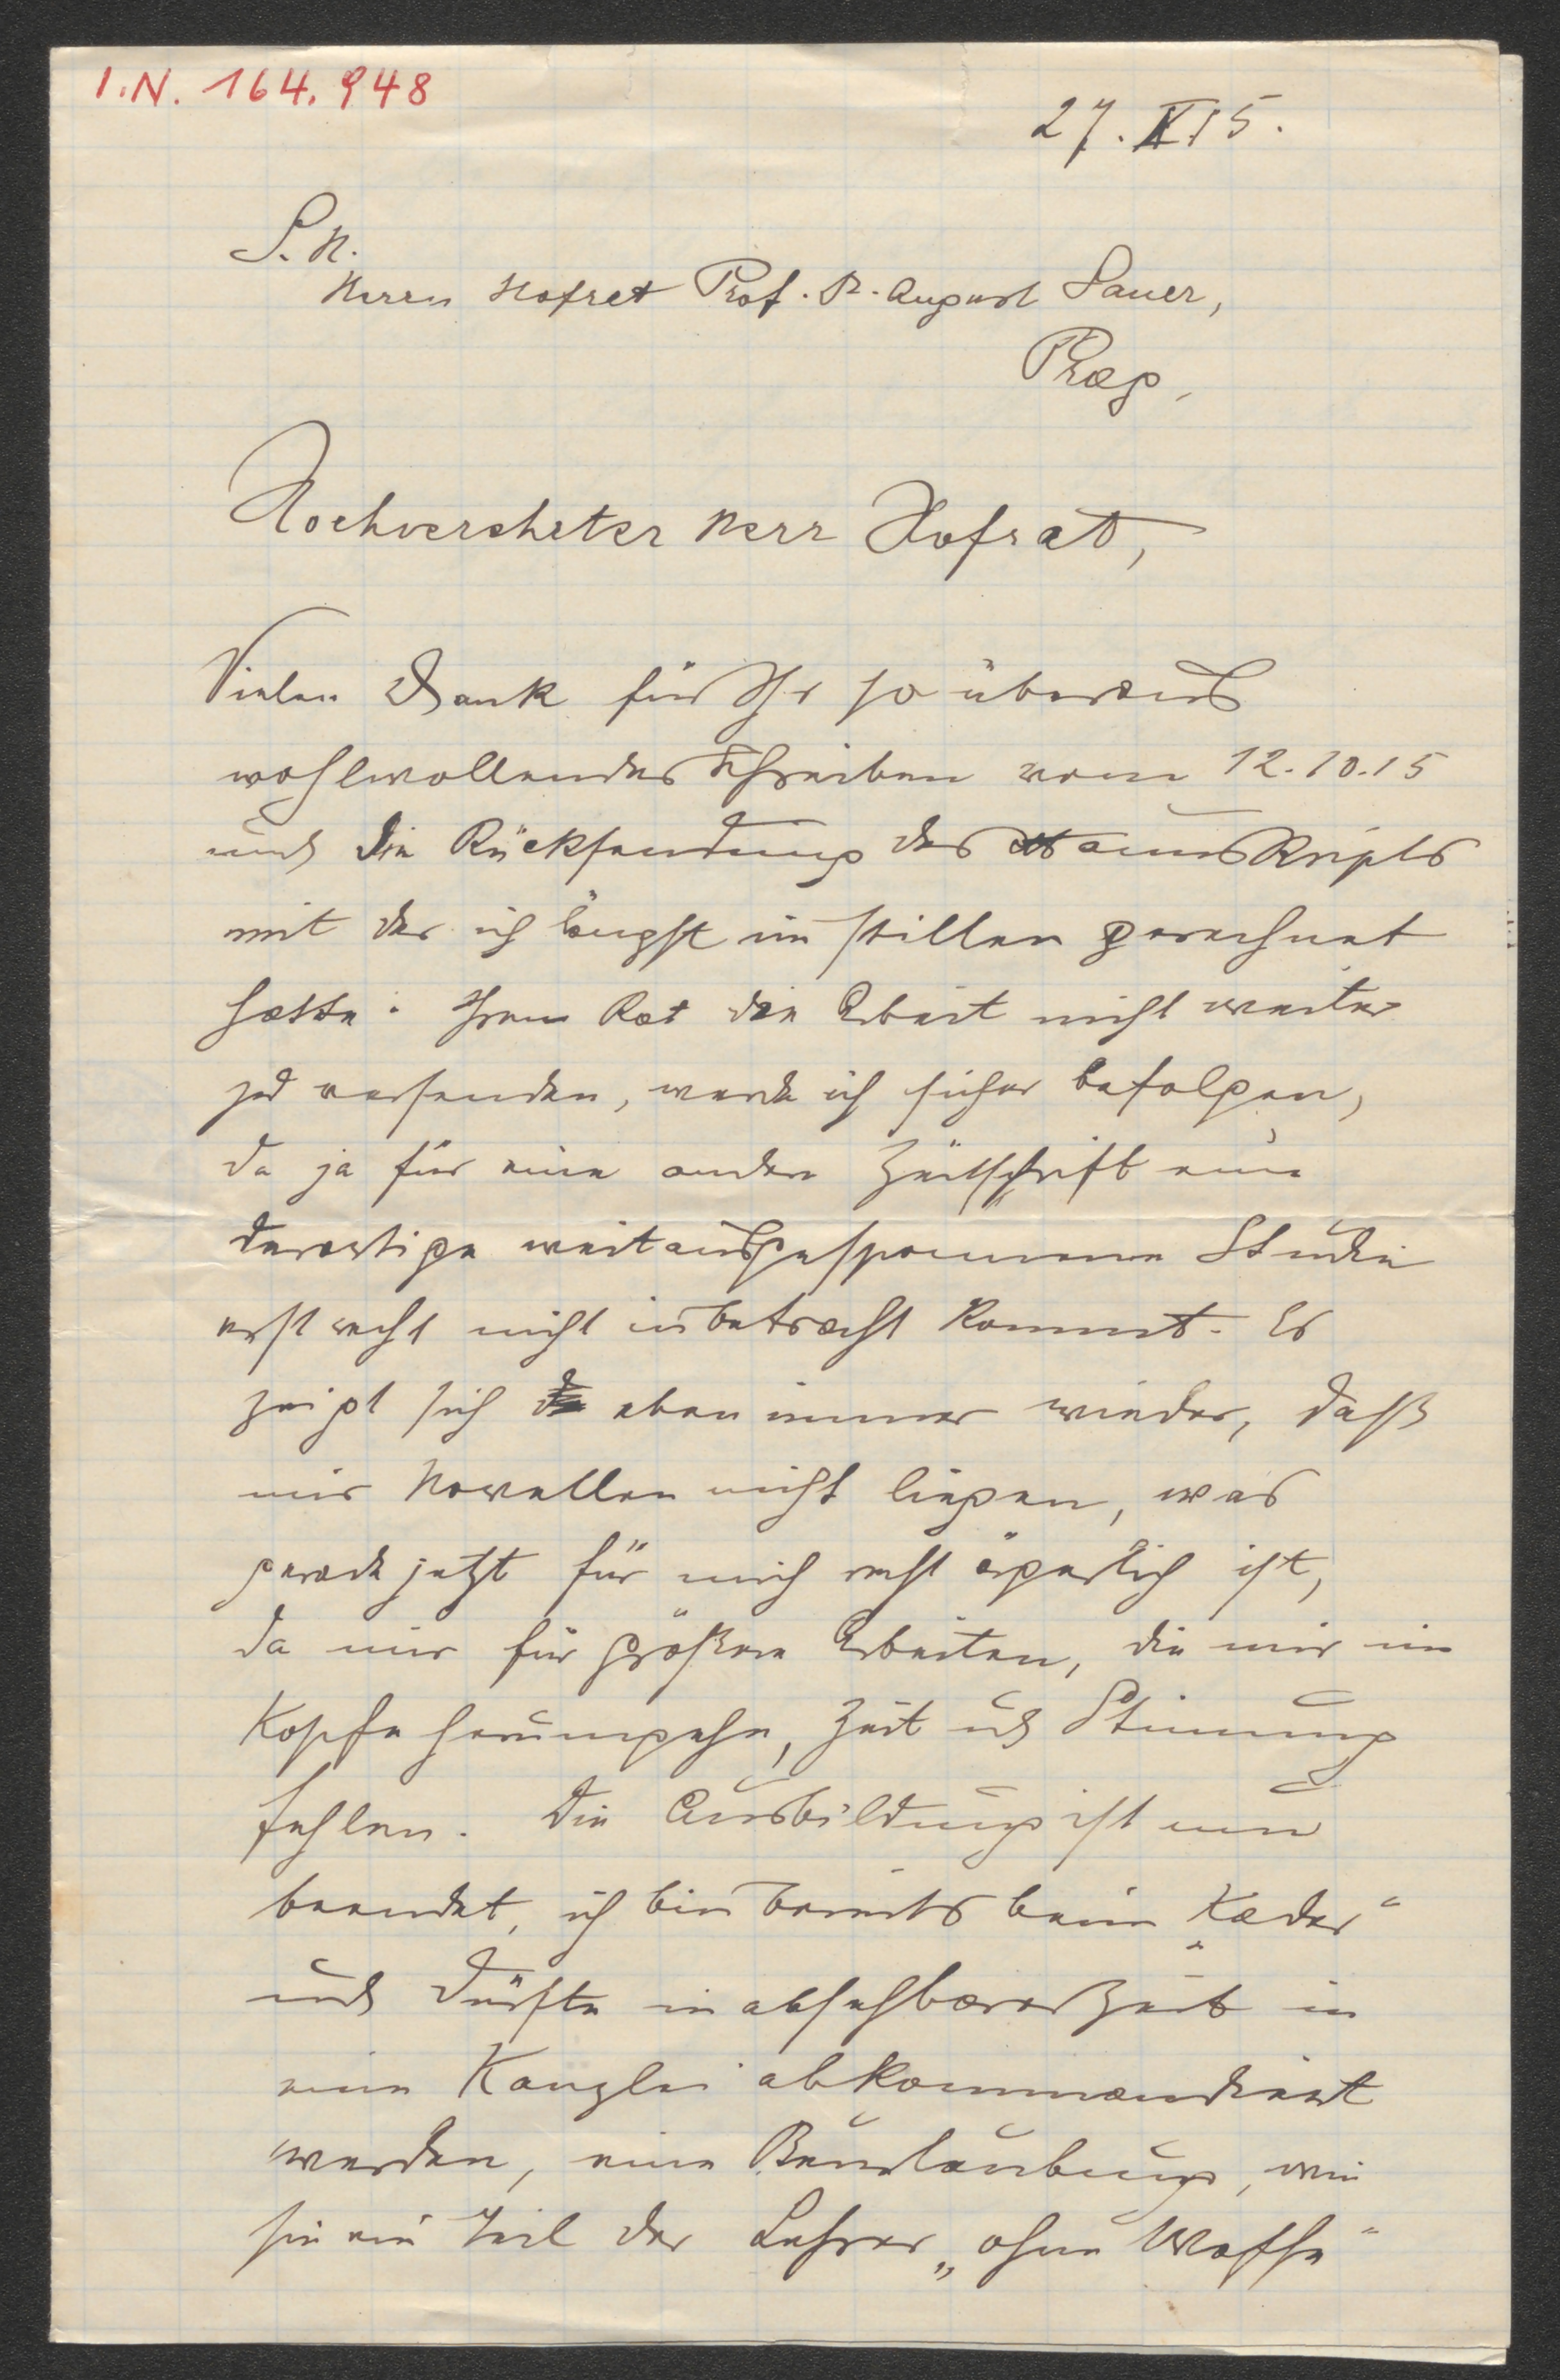 I.N. 164.948
27. X 15.
S. H.
Herrn Hofrat Prof. Dr. August Sauer,
Prag,
Hochverehrter Herr Hofrat,
Vielen Dank für Ihr so überaus
wohlwollendes Schreiben vom 12.10.15
und die Rücksendung des Manuskripts
mit der ich längst im stillen gerechnet
hatte. Ihren Rat die Arbeit nicht weiter
zu versenden, werde ich sicher befolgen,
da ja für eine andere Zeitschrift eine
derartige weitausgesponnene Studie
erst recht nicht inbetracht kommt. Es
zeigt sich eben immer wieder, daß
mir Novellen nicht liegen, was
gerade jetzt für mich recht ärgerlich ist,
da mir für größere Arbeiten, die mir im
Kopfe herumgehn, Zeit und Stimmung
fehlen. Die Ausbildung ist nun
beendet, ich bin bereits beim „Kader“
und dürfte in absehbarer Zeit in
eine Kanzlei abkommandiert
werden, eine Beurlaubung, wie
sie ein Teil der Lehrer „ohne Waffe“